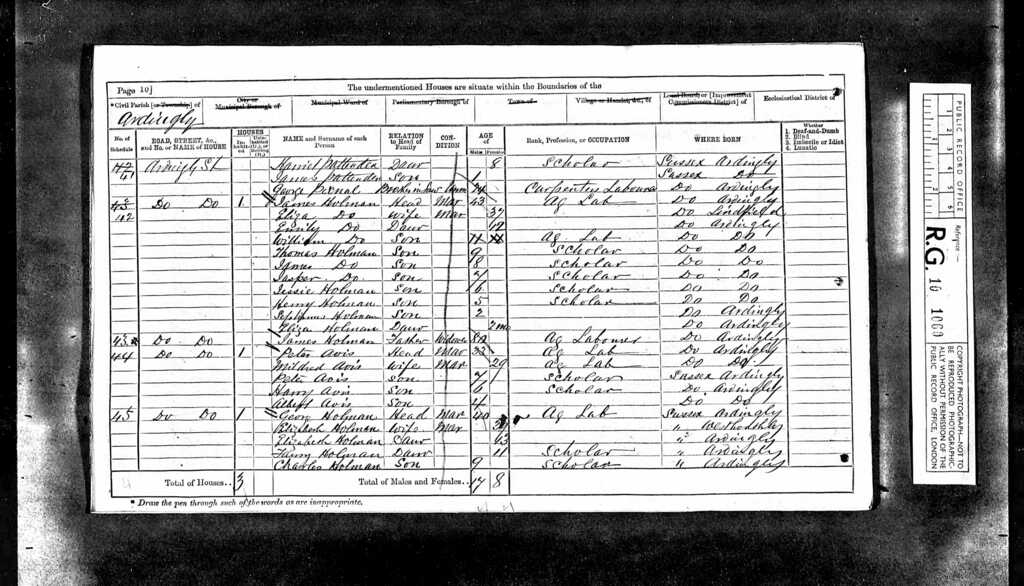 Page 10]
The undermentioned Houses are situate within the Boundaries of the
*Civil Parish [or Township] of
City or Municipal Borough of
Municipal Ward of
Parliamentary Borough of
Town of
Village or Hamlet, &c., of
Local Board, or [Improvement Commissioners District] of
Ecclesiastical District of
Ardingly
No. of Schedule
ROAD, STREET, &c., and No. or NAME of HOUSE
HOUSES
NAME and Surname of each Person
RELATION to Head of Family
CONDITION
AGE of
Males
Females
Rank, Profession, or OCCUPATION
WHERE BORN
Whether
1. Deaf-and-Dumb
2. Blind
3. Imbecile or Idiot
4. Lunatic
Ardingly St Daur 8 Scholar Sussex Ardingly
James Son 1 Sussex Do
George Brother in law Carpenters Labourer Do Ardingly
Do Do 1 James Holman Head Mar 43 Ag Lab Do Ardingly
Eliza Do Wife Mar 37 Do Lindfield
Emily Do Daur 12 Do Ardingly
William Do Son 11 Ag Lab Do Do
Thomas Holman Son 9 Scholar Do Do
James Do Son 8 Scholar Do Do
Jasper Do Son 7 Scholar Do Do
Jessie Holman Son 6 Scholar Do Do
Henry Holman Son 5 Scholar Do Do
Holman Son 2 Do Ardingly
Eliza Holman Daur 2 mo Do Ardingly
43 Do Do James Holman Father Widower 80 Ag Labourer Do Ardingly
44 Do Do 1 Peter Avis Head Mar 33 Ag Lab Do Ardingly
Mildred Avis Wife Mar 29 Ag Lab Do Do
Peter Avis Son 7 Scholar Sussex Ardingly
Harry Avis Son 6 Scholar Do Ardingly
Albert Avis Son 4 Do Do
45 Do Do 1 Georg Holman Head Mar 40 Ag Lab Sussex Ardingly
Elizabeth Holman Wife Mar "
Elizabeth Holman Daur 13 " Ardingly
Fanny Holman Daur 11 Scholar " Ardingly
Charles Holman Son 9 Scholar " Ardingly
Total of Houses.. 3
Total of Males and Females.. 17 8
* Draw the pen through such of the words as are inappropriate.
PUBLIC RECORD OFFICE
1 2 3 4 5 6
Reference:-
R.G. 10
COPYRIGHT PHOTOGRAPH—NOT TO BE REPRODUCED PHOTOGRAPHICALLY WITHOUT PERMISSION OF THE PUBLIC RECORD OFFICE, LONDON